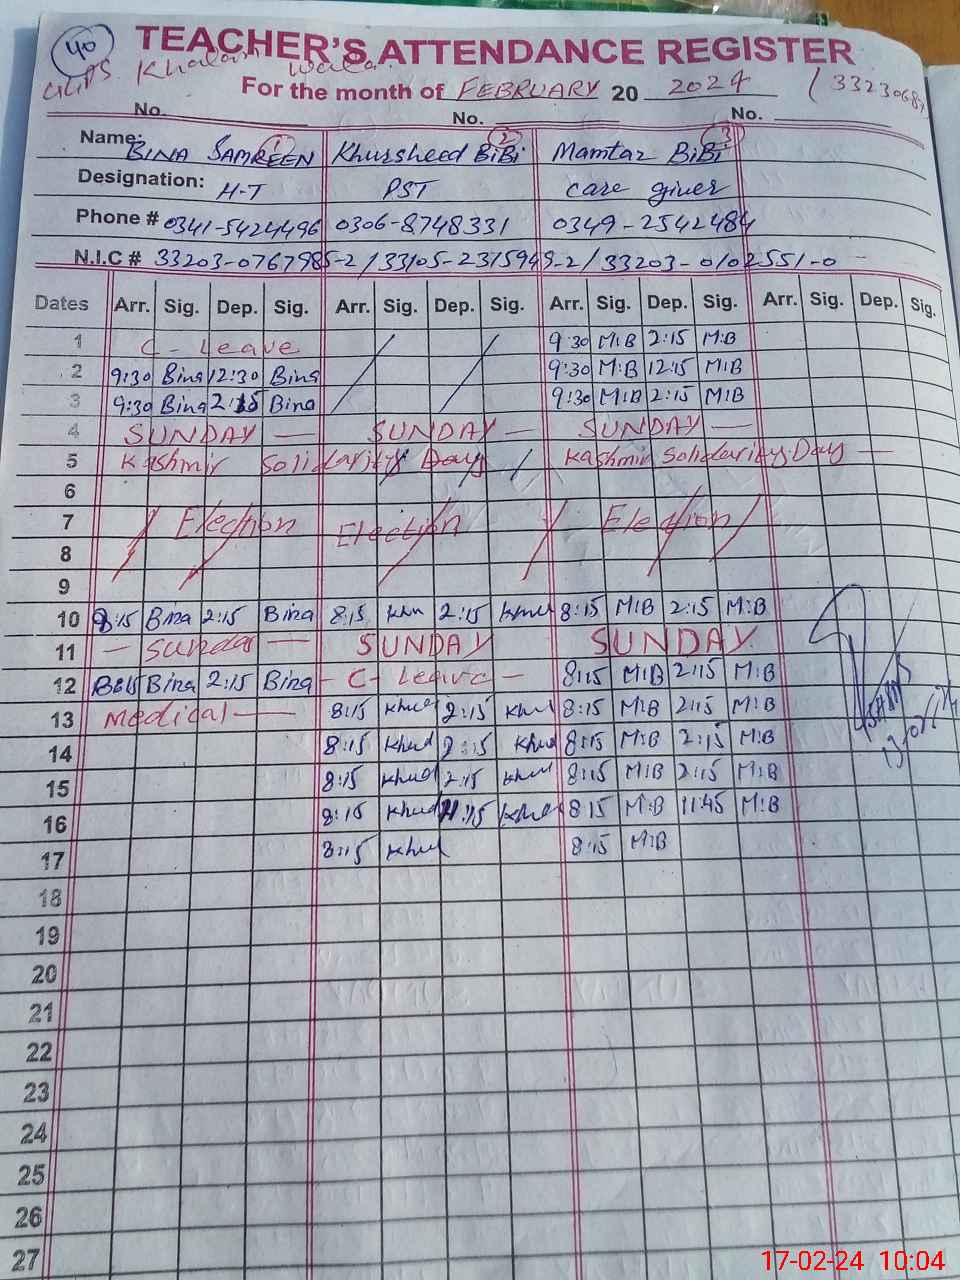 40
TEACHER'S ATTENDANCE REGISTER
GGPS Khalan wala
For the month of FEBRUARY 20 2024
No. No. No.
Name: BINA SAMREEN 1 Khursheed BiBi 2 Mamtaz BiBi 3
Designation: H-T PST care giver
Phone # 0341-5424496 0306-8748331 0349-2542484
N.I.C # 33203-0767985-2 / 33105-2315949-2 / 33203-0102551-0
Dates Arr. Sig. Dep. Sig. Arr. Sig. Dep. Sig. Arr. Sig. Dep. Sig. Arr. Sig. Dep. Sig.
1 C-Leave 9:30 M:B 2:15 M:B
2 9:30 Bina 12:30 Bina 9:30 M:B 12:15 M:B
3 9:30 Bina 2:15 Bina 9:30 M:B 2:15 M:B
4 SUNDAY — SUNDAY — SUNDAY —
5 Kashmir Solidarity Day / Kashmir Solidarity Day —
6
7 Election Election Election
8
9
10 8:15 Bina 2:15 Bina 8:15 khu 2:15 8:15 M:B 2:15 M:B
11 — Sunday — SUNDAY SUNDAY
12 8:15 Bina 2:15 Bina - C-Leave - 8:15 M:B 2:15 M:B
13 Medical — 8:15 khud 2:15 khud 8:15 M:B 2:15 M:B
14 8:15 khud 2:15 khud 8:15 M:B 2:15 M:B
15 8:15 khud 2:15 khud 8:15 M:B 2:15 M:B
16 8:15 khud 11:45 khud 8:15 M:B 11:45 M:B
17 8:15 khud 8:15 M:B
18
19
20
21
22
23
24
25
26
27
17-02-24 10:04